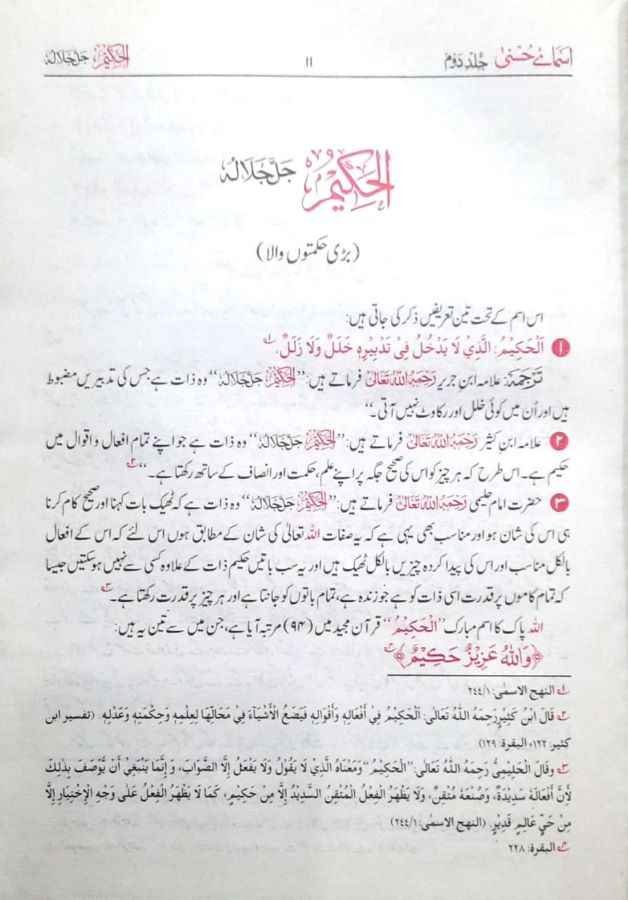 اسمائے حُسنیٰ جلد دوم ۱۱ الحکیم جل جلالہ
الحَکِیمُ جَلَّ جَلَالُہٗ
(بڑی حکمتوں والا)
اس اسم کے تحت تین تعریفیں ذکر کی جاتی ہیں:
۱ اَلْحَكِيْمُ: الَّذِيْ لَا يَدْخُلُ فِيْ تَدْبِيْرِهٖ خَلَلٌ وَلَا زَلَلٌ۔ ؎۱
تَرجَمَہ: علامہ ابن جریر رَحِمَہُ اللہُ تَعَالیٰ فرماتے ہیں: ”الحکیم جل جلالہ“ وہ ذات ہے جس کی تدبیریں مضبوط
ہیں اور اُن میں کوئی خلل اور رکاوٹ نہیں آتی۔“
۲ علامہ ابن کثیر رَحِمَہُ اللہُ تَعَالیٰ فرماتے ہیں: ”الحکیم جل جلالہ“ وہ ذات ہے جو اپنے تمام افعال و اقوال میں
حکیم ہے۔ اس طرح کہ ہر چیز کو اس کی صحیح جگہ پر اپنے علم، حکمت اور انصاف کے ساتھ رکھتا ہے۔“ ؎۲
۳ حضرت امام حلیمی رَحِمَہُ اللہُ تَعَالیٰ فرماتے ہیں: ”الحکیم جل جلالہ“ وہ ذات ہے کہ ٹھیک بات کہنا اور صحیح کام کرنا
ہی اس کی شان ہو اور مناسب بھی یہی ہے کہ یہ صفات اللہ تعالیٰ کی شان کے مطابق ہوں اس لئے کہ اس کے افعال
بالکل مناسب اور اس کی پیدا کردہ چیزیں بالکل ٹھیک ہیں اور یہ سب باتیں حکیم ذات کے علاوہ کسی سے نہیں ہوسکتیں جیسا
کہ تمام کاموں پر قدرت اسی ذات کو ہے جو زندہ ہے، تمام باتوں کو جانتا ہے اور ہر چیز پر قدرت رکھتا ہے۔ ؎۳
اللہ پاک کا اسم مبارک ”اَلْحَكِيْمُ“ قرآن مجید میں (۹۴) مرتبہ آیا ہے، جن میں سے تین یہ ہیں:
﴿وَاللّٰهُ عَزِيْزٌ حَكِيْمٌ﴾ ؎۴
؎۱ النهج الاسمٰى: ۲۴۴/۱
؎۲ قَالَ ابْنُ كَثِيْرٍ رَحِمَهُ اللّٰهُ تَعَالٰى: اَلْحَكِيْمُ فِيْ أَفْعَالِهٖ وَأَقْوَالِهٖ فَيَضَعُ الْأَشْيَآءَ فِيْ مَحَالِّهَا لِعِلْمِهٖ وَحِكْمَتِهٖ وَعَدْلِهٖ. (تفسير ابن
كثير: ۱۲۲، البقرة: ۱۲۹)
؎۳ وقَالَ الْحَلِيْمِيُّ رَحِمَهُ اللّٰهُ تَعَالٰى: ”اَلْحَكِيْمُ“ وَمَعْنَاهُ الَّذِيْ لَا يَقُوْلُ وَلَا يَفْعَلُ إِلَّا الصَّوَابَ، وَإِنَّمَا يَنْبَغِيْ أَنْ يُّوْصَفَ بِذٰلِكَ
لِأَنَّ أَفْعَالَهٗ سَدِيْدَةٌ، وَصُنْعَهٗ مُتْقَنٌ، وَلَا يَظْهَرُ الْفِعْلُ الْمُتْقَنُ السَّدِيْدُ إِلَّا مِنْ حَكِيْمٍ، كَمَا لَا يَظْهَرُ الْفِعْلُ عَلٰى وَجْهِ الْإِخْتِيَارِ إِلَّا
مِنْ حَيٍّ عَالِمٍ قَدِيْرٍ. (النهج الاسمٰى: ۲۴۴/۱)
؎۴ البقرة: ۲۲۸